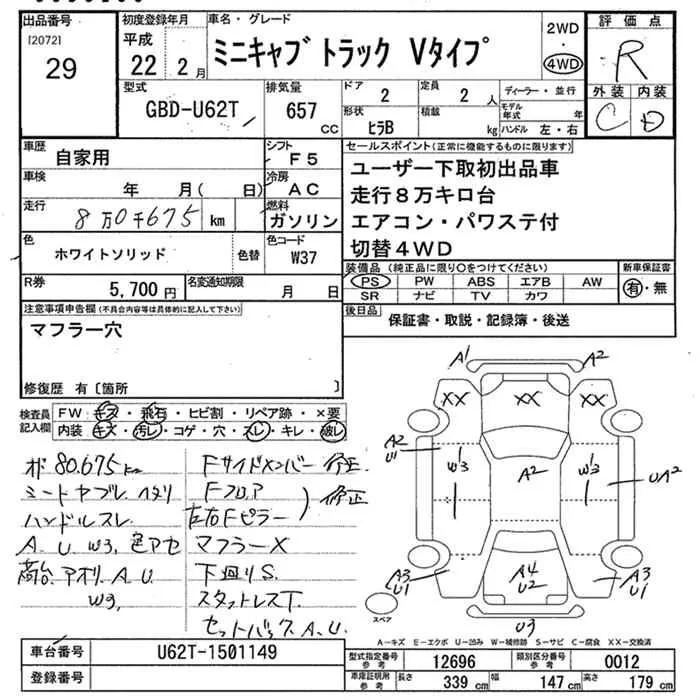 出品番号
[2072]
29
初度登録年月
平成
22 2 月
車名・グレード
ミニキャブ トラック Vタイプ
2WD
・
4WD
評価点
R
外装 内装
C D
型式
GBD-U62T
排気量
657
cc
ドア
2
定員
2 人
ディーラー・並行
形状
ヒラB
積載
kg
モデル
年式 年
ハンドル 左・右
車歴
自家用
シフト
F5
車検
年 月( 日)
冷房
AC
走行
8万0千675 km
燃料
ガソリン
色
ホワイトソリッド
色替
色コード
W37
R券
5,700 円
名変通知期限
月 日
セールスポイント(正常に機能するものに限ります)
ユーザー下取初出品車
走行8万キロ台
エアコン・パワステ付
切替4WD
装備品(純正品に限り○をつけてください)
新車保証書
PS PW ABS エアB AW
有・無
SR ナビ TV カワ
後日品
保証書・取説・記録簿・後送
注意事項申告欄(不具合内容等は具体的に記入して下さい)
マフラー穴
修復歴 有〔箇所 〕
検査員
記入欄
FW キズ・飛石・ヒビ割・リペア跡・×要
内装 キズ・汚レ・コゲ・穴・スレ・キレ・破レ
オド 80.675km
シートヤブレ、ヘタリ
ハンドルスレ
A. U. W3. 色アセ
荷台、アオリ. A. U.
W3.
Fサイドメンバー 修正
Fフロア
左右Fピラー ) 修正
マフラーX
下廻りS.
スタットレスT.
セットバック. A. U.
A1 A2
XX XX XX
A2
U1
W3
A2
W3
UA2
A3
U1
A4
U2
A3
U1
U3
スペア
A-キズ E-エクボ U-凹み W-補修跡 S-サビ C-腐食 XX-交換済
車台番号
U62T-1501149
登録番号
型式指定番号
参考
12696
類別区分番号
参考
0012
車庫証明用
参考
長さ
339 cm
幅
147 cm
高さ
179 cm